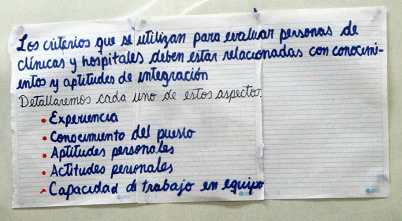 Los criterios que se utilizan para evaluar personas de
clínicas y hospitales deben estar relacionadas con conocimi-
entos y aptitudes de integración
Detallaremos cada uno de estos aspectos
• Experiencia
• Conocimiento del puesto
• Aptitudes personales
• Actitudes personales
• Capacidad de trabajo en equipo